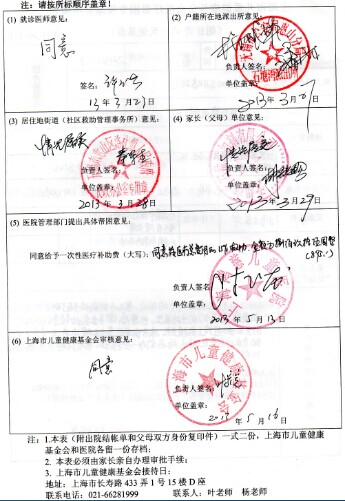 注：请按所标顺序盖章!
(1) 就诊医师意见:
同意
签名:
13年3月27日
(2) 户籍所在地派出所意见:
负责人签名:
单位盖章:
2013年3月27
(3) 居住地街道（社区救助管理事务所）意见:
情况属实
负责人签名:
单位盖章:
2013年3月28日
(4) 家长（父母）单位意见:
负责人签名:
单位盖章:
2013年3月29
(5) 医院管理部门提出具体帮困意见:
同意给予一次性医疗补助费（大写）:
负责人签名
单位盖章:
2013年5月13日
(6) 上海市儿童健康基金会审核意见:
同意
上海市儿童健康基金会
负责人签名:
单位盖章:
5月16日
注：1.本表（附出院结帐单和父母双方身份复印件）一式二份，上海市儿童健康
基金会和医院各留一份存档;
2. 本表必须由家长亲自办理审批手续;
3. 上海市儿童健康基金会接待日:
地址：上海市长寿路 433 弄 1 号 15 楼 D 座
联系电话：021-66281999 联系人：叶老师 杨老师